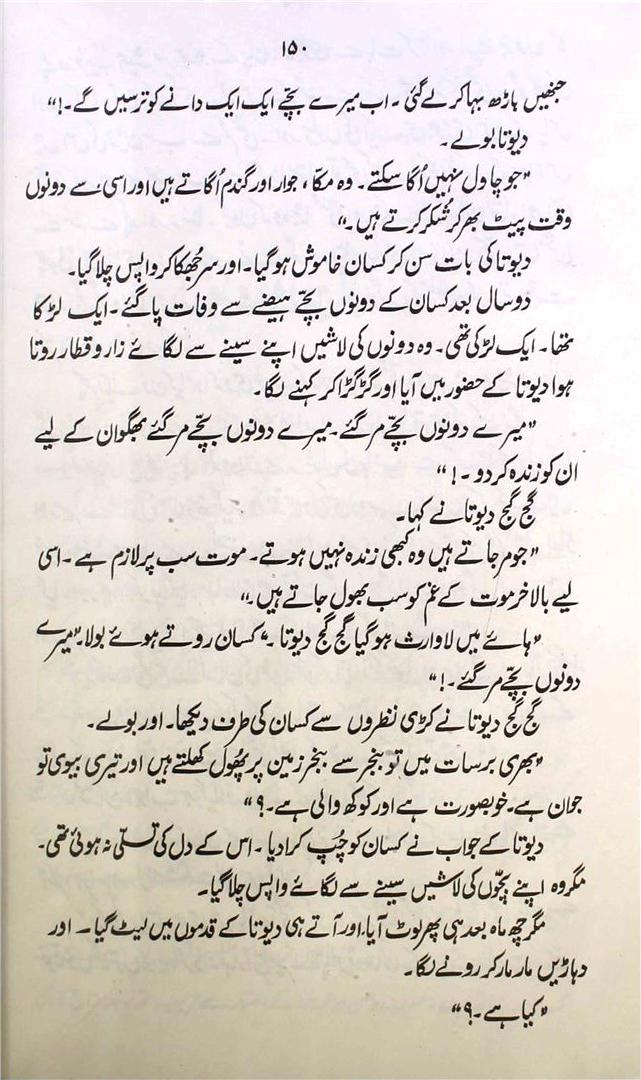 ۱۵۰
جنھیں باڑھ بہا کر لے گئی ۔ اب میرے بچّے ایک ایک دانے کو ترسیں گے ۔!“
دیوتا بولے ۔
”جو چاول نہیں اُگا سکتے ۔ وہ مکّا، جوار اور گندم اُگاتے ہیں اور اسی سے دونوں
وقت پیٹ بھر کر شکر کرتے ہیں ۔“
دیوتا کی بات سن کر کسان خاموش ہو گیا ۔ اور سر جُھکا کر واپس چلا گیا ۔
دو سال بعد کسان کے دونوں بچّے ہیضے سے وفات پا گئے ۔ ایک لڑکا
تھا ۔ ایک لڑکی تھی ۔ وہ دونوں کی لاشیں اپنے سینے سے لگائے زار و قطار روتا
ہوا دیوتا کے حضور میں آیا اور گڑگڑا کر کہنے لگا ۔
”میرے دونوں بچّے مر گئے ۔ میرے دونوں بچّے مر گئے بھگوان کے لیے
ان کو زندہ کر دو ۔!“
گج گج دیوتا نے کہا ۔
”جو مر جاتے ہیں وہ کبھی زندہ نہیں ہوتے ۔ موت سب پر لازم ہے ۔ اسی
لیے بالآخر موت کے غم کو سب بھول جاتے ہیں ۔“
”ہائے میں لاوارث ہو گیا گج گج دیوتا ۔“ کسان روتے ہوئے بولا ۔ ”میرے
دونوں بچّے مر گئے ۔!“
گج گج دیوتا نے کڑی نظروں سے کسان کی طرف دیکھا ۔ اور بولے ۔
”بھری برسات میں تو بنجر سے بنجر زمین پر پھُول کھلتے ہیں اور تیری بیوی تو
جوان ہے ۔ خوبصورت ہے اور کوکھ والی ہے ۔؟“
دیوتا کے جواب نے کسان کو چُپ کرا دیا ۔ اس کے دل کی تسلّی نہ ہوئی تھی ۔
مگر وہ اپنے بچّوں کی لاشیں سینے سے لگائے واپس چلا گیا ۔
مگر چھ ماہ بعد ہی پھر لوٹ آیا، اور آتے ہی دیوتا کے قدموں میں لیٹ گیا ۔ اور
دہاڑیں مار مار کر رونے لگا ۔
”کیا ہے ۔؟“